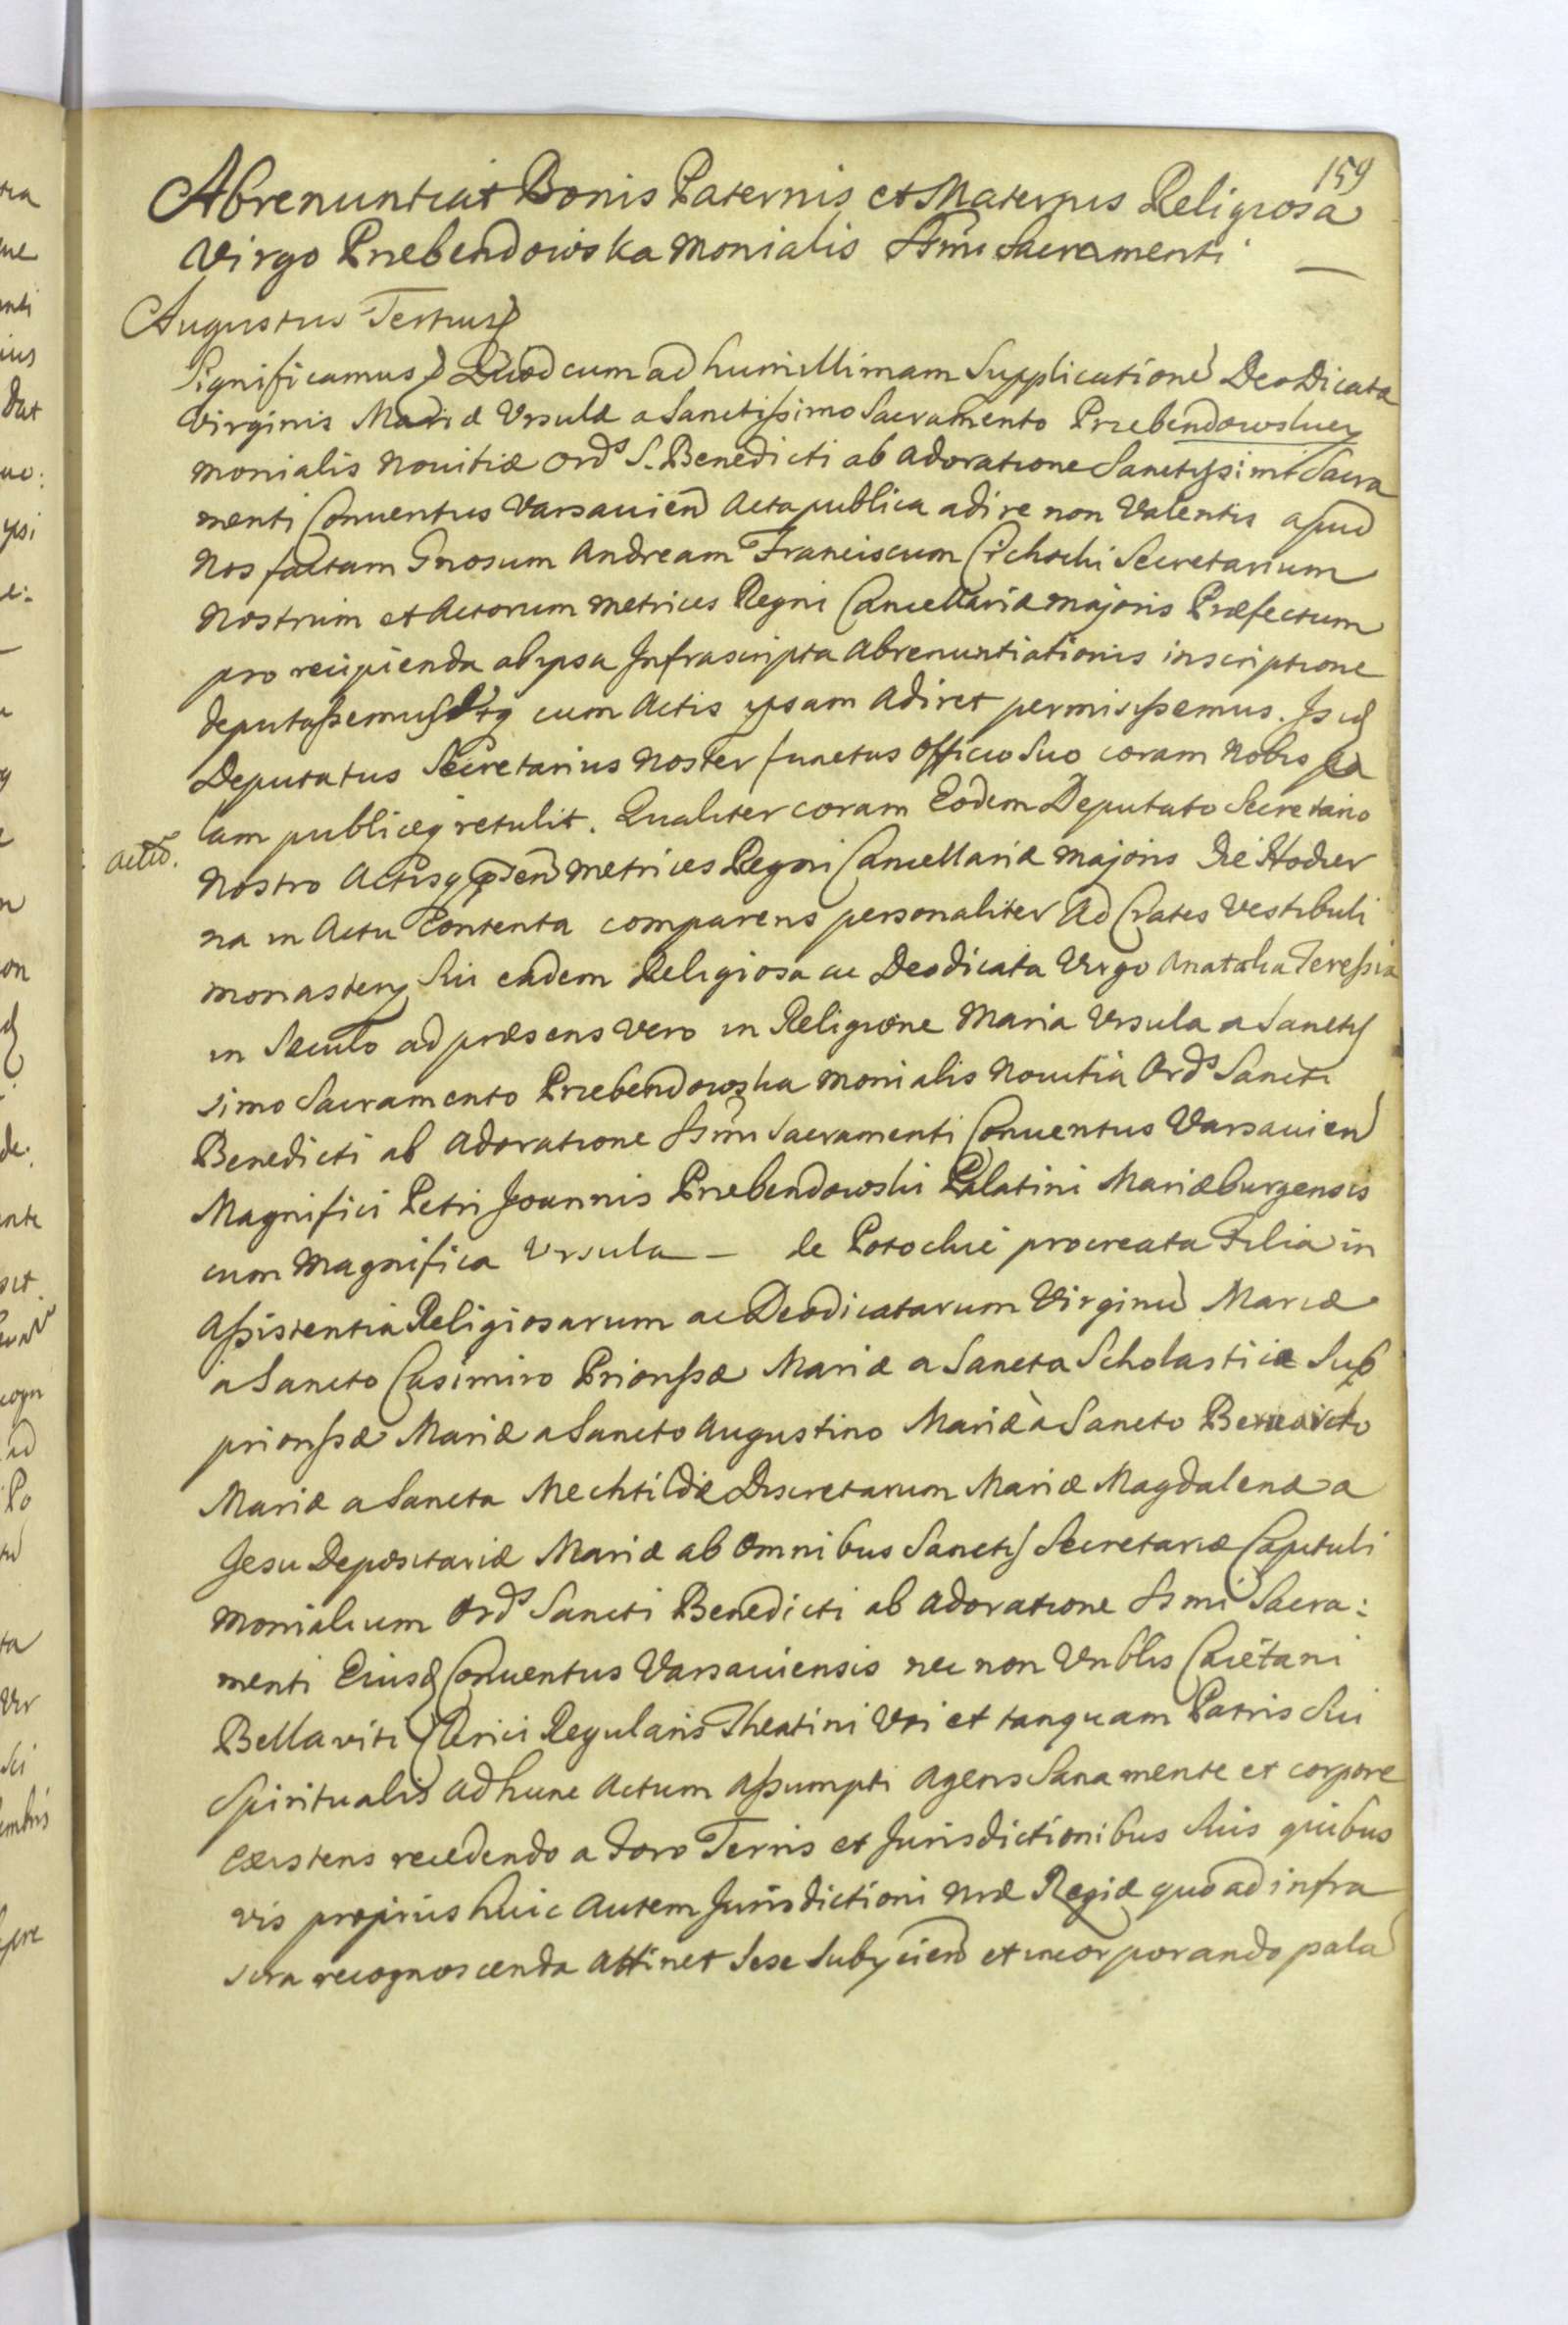 159
Abrenuntiat Bonis Paternis et Maternis Religiosa
Virgo Przebendowska Monialis SSmi Sacramenti
Augustus Tertius
Significamus Quod cum ad humillimam Supplicationē Deo Dicatæ
Virginis Mariæ Ursulæ a Sanctissimo Sacramento Przebendowskiey
Monialis Novitiæ Ordis S. Benedicti ab Adoratione Sanctissimi Sacra
menti Conventus Varsavien Acta publica adire non Valentis apud
Nos factam Gnosum Andream Franciscum Cichocki Secretarium
Nostrum et Actorum Metrices Regni Cancellariæ Majoris Præfectum
pro recipienda ab ipsa Infrascripta Abrenuntiationis inscriptione
deputassemus Utq cum Actis ipsam Adiret permisissemus. Isq
Deputatus Secretarius Noster functus Officio Suo coram Nobis pa
lam publiceq retulit. Qualiter coram Eodem Deputato Secretario
Nostro Actisq psen Metrices Regni Cancellariæ Majoris Die Hodier
na in Actu Contenta comparens personaliter Ad Crates Vestibuli
Monastery Sui eadem Religiosa ac Deodicata Virgo Anatalia Teressia
in Seculo ad præsens vero in Religione Maria Ursula a Sanctis
simo Sacramento Przebendowska Monialis Novitia Ordis Sancti
Benedicti ab Adoratione SSmi Sacramenti Conventus Varsavien
Magnifici Petri Joannis Przebendowski Palatini Mariæburgensis
cum Magnifica Ursula – de Potockie procreata Filia in
Assistentia Religiosarum ac Deodicatarum Virginū Mariæ
à Sancto Casimiro Priorissæ Mariæ a Sancta Scholastica Sub
priorissæ Mariæ a Sancto Augustino Mariæ à Sancto Benedicto
Mariæ a Sancta Mechtilde Discretarum Mariæ Magdalenæ a
Jesu Depositariæ Mariæ ab Omnibus Sanctis Secretariæ Capituli
Monialium Ordis Sancti Benedicti ab Adoratione SSmi Sacra:
menti Eiusd Conventus Varsaviensis nec non Vnblis Caietani
Bellaviti Clerici Regularis Theatini Uti et tanquam Patris Sui
Spiritualis ad hunc Actum Assumpti Agens Sana mente et corpore
existens recedendo a Foro Terris et Jurisdictionibus Suis quibus
vis propriis huic Autem Jurisdictioni Nræ Regiæ quo ad infra
scra recognoscenda attinet Sese Subycien et incorporando palā